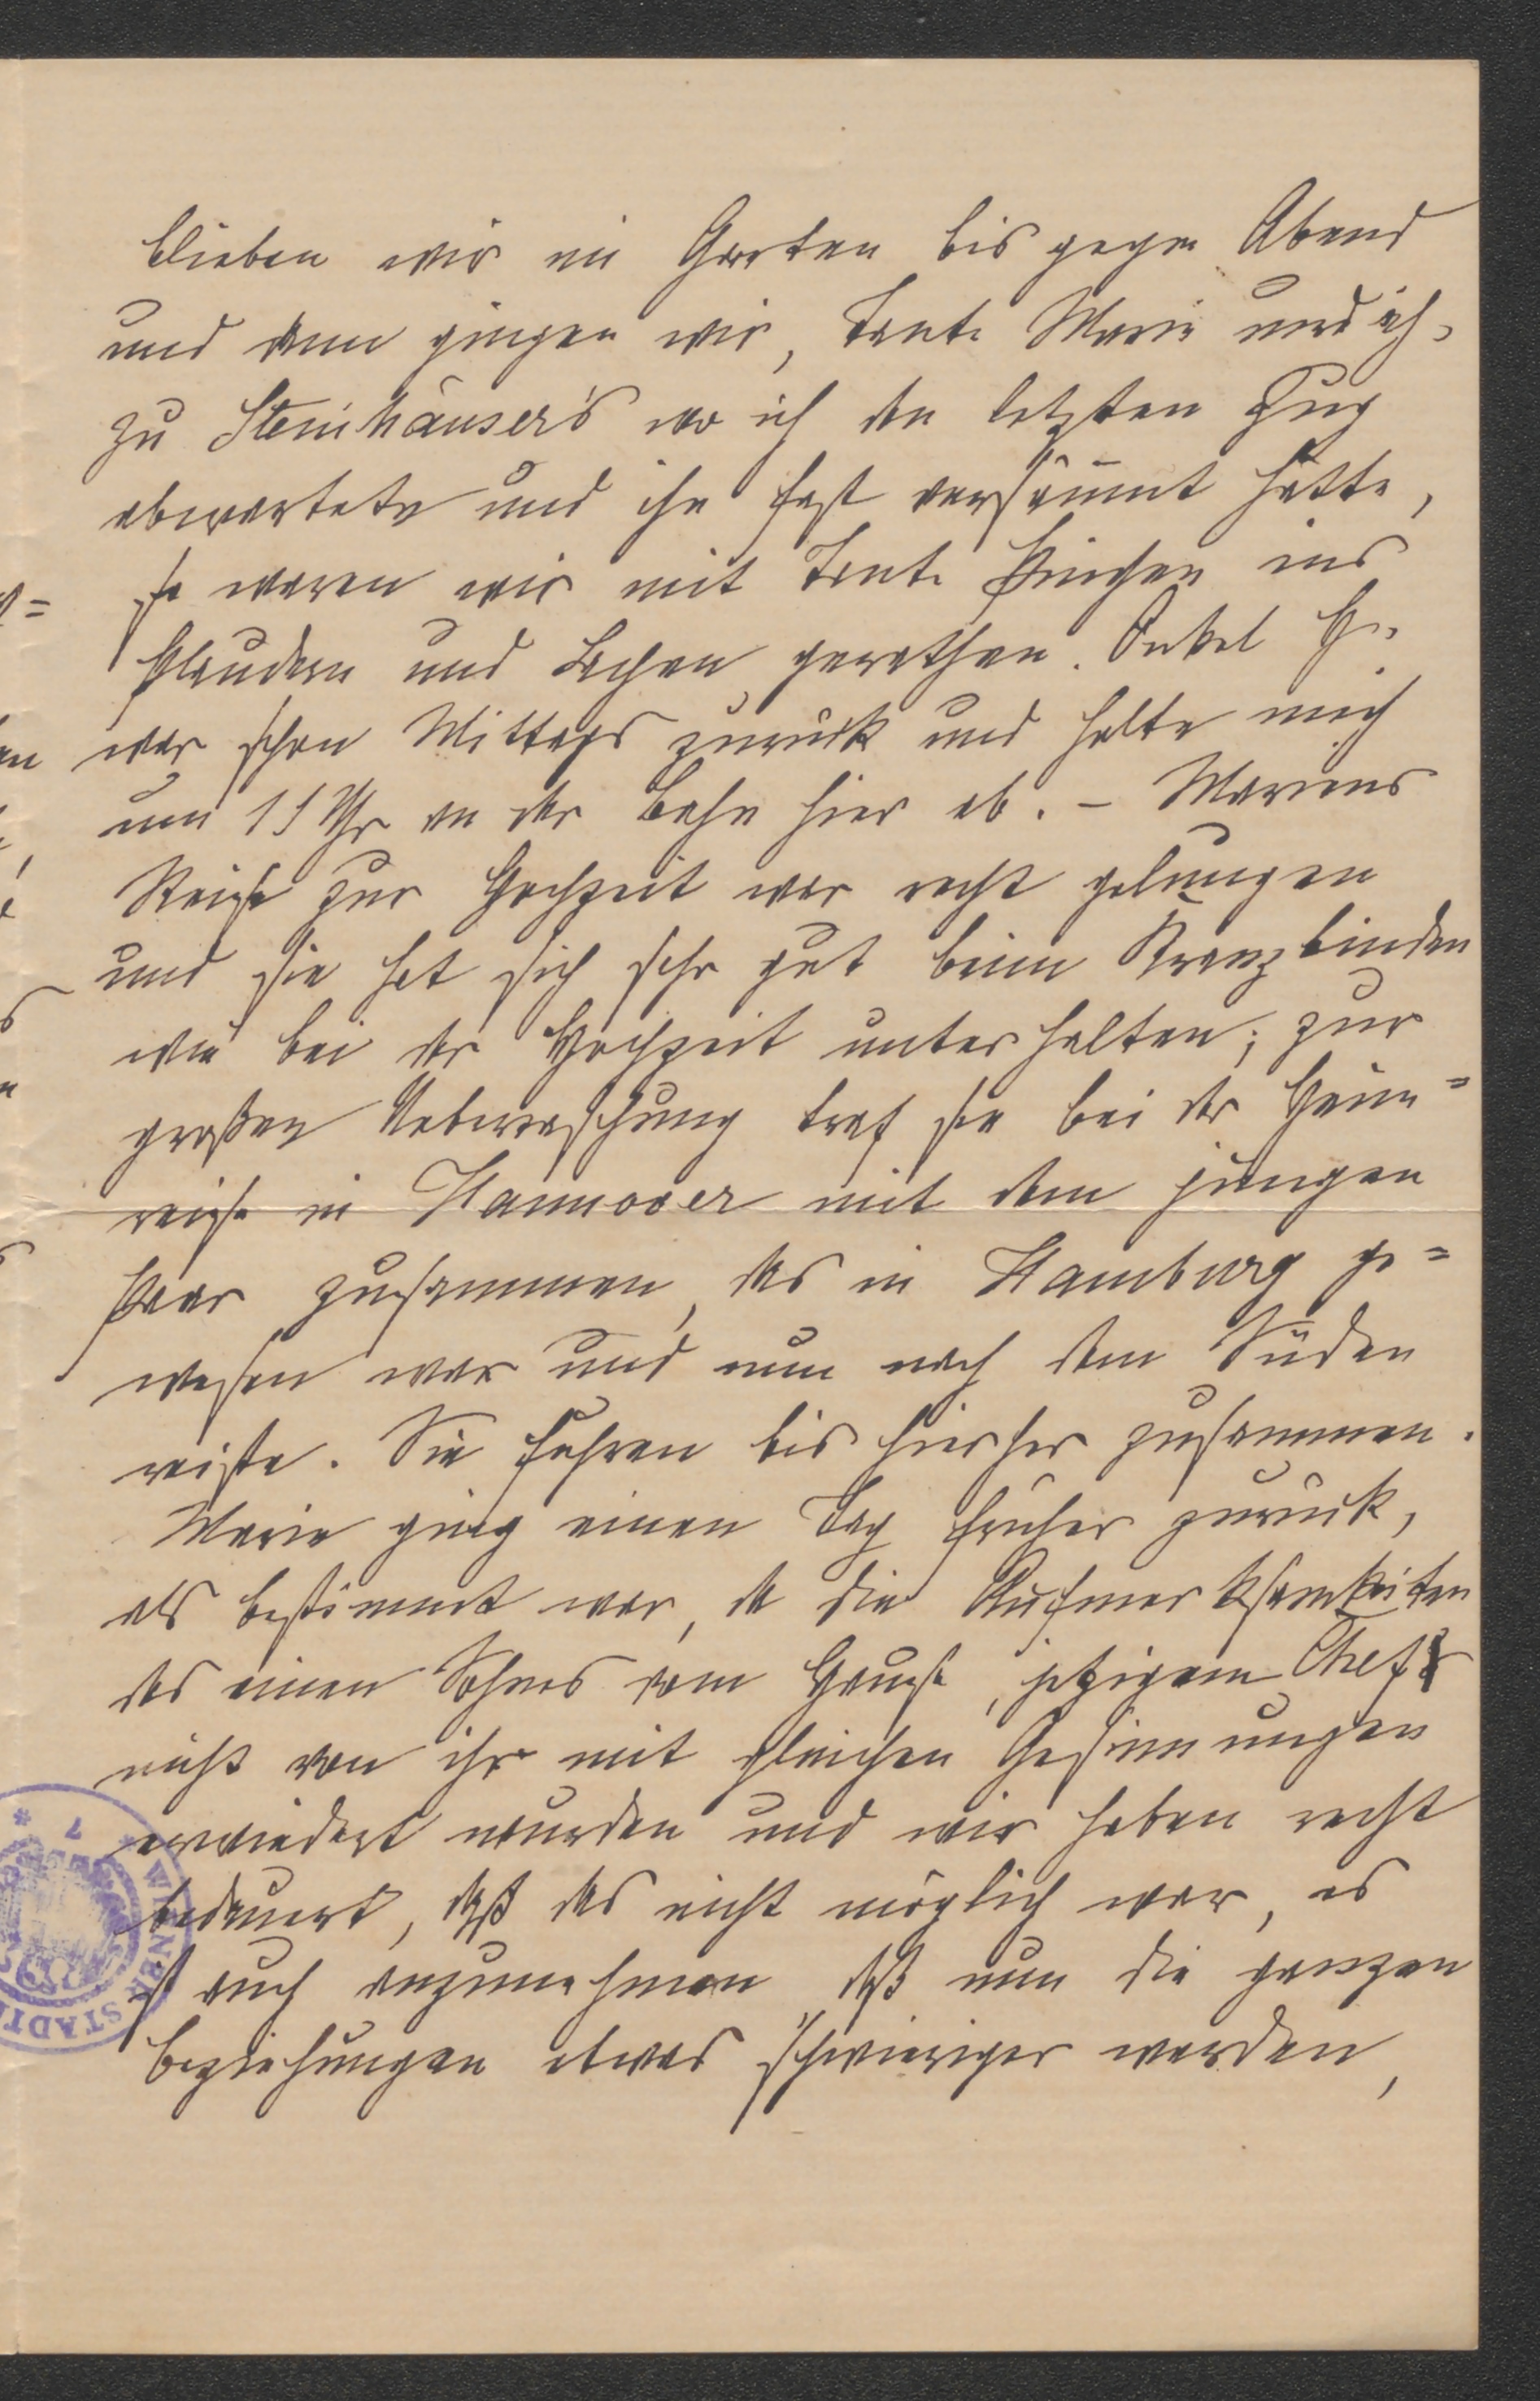 blieben wir im Garten bis gegen Abend
und dann gingen wir, Tante Marie und ich,
zu Steinhäuser's wo ich den letzten Zug
abwartete und ihn fast versäumt hätte,
so waren wir mit Tante Finchen ins
Plaudern und Lachen gerathen. Onkel H.
war schon Mittags zurück und holte mich
um 11 Uhr an der Bahn hier ab. – Mariens
Reise zur Hochzeit war recht gelungen
und sie hat sich sehr gut beim Kranzbinden
wie bei der Hochzeit unterhalten; zur
großen Ueberraschung traf sie bei der Heim=
reise in Hannover mit dem jungen
Paar zusammen, das in Hamburg ge=
wesen war und nun nach dem Süden
reiste. Sie fuhren bis hierher zusammen.
Marie ging einen Tag früher zurück,
als bestimmt war, da die Aufmerksamkeiten
des einen Sohnes vom Hause, jetzigem Chef
nicht von ihr mit gleichen Gesinnungen
erwiedert wurden und wir haben recht
bedauert, daß das nicht möglich war, es
ist auch anzunehmen daß nun die ganzen
Beziehungen etwas schwieriger werden,